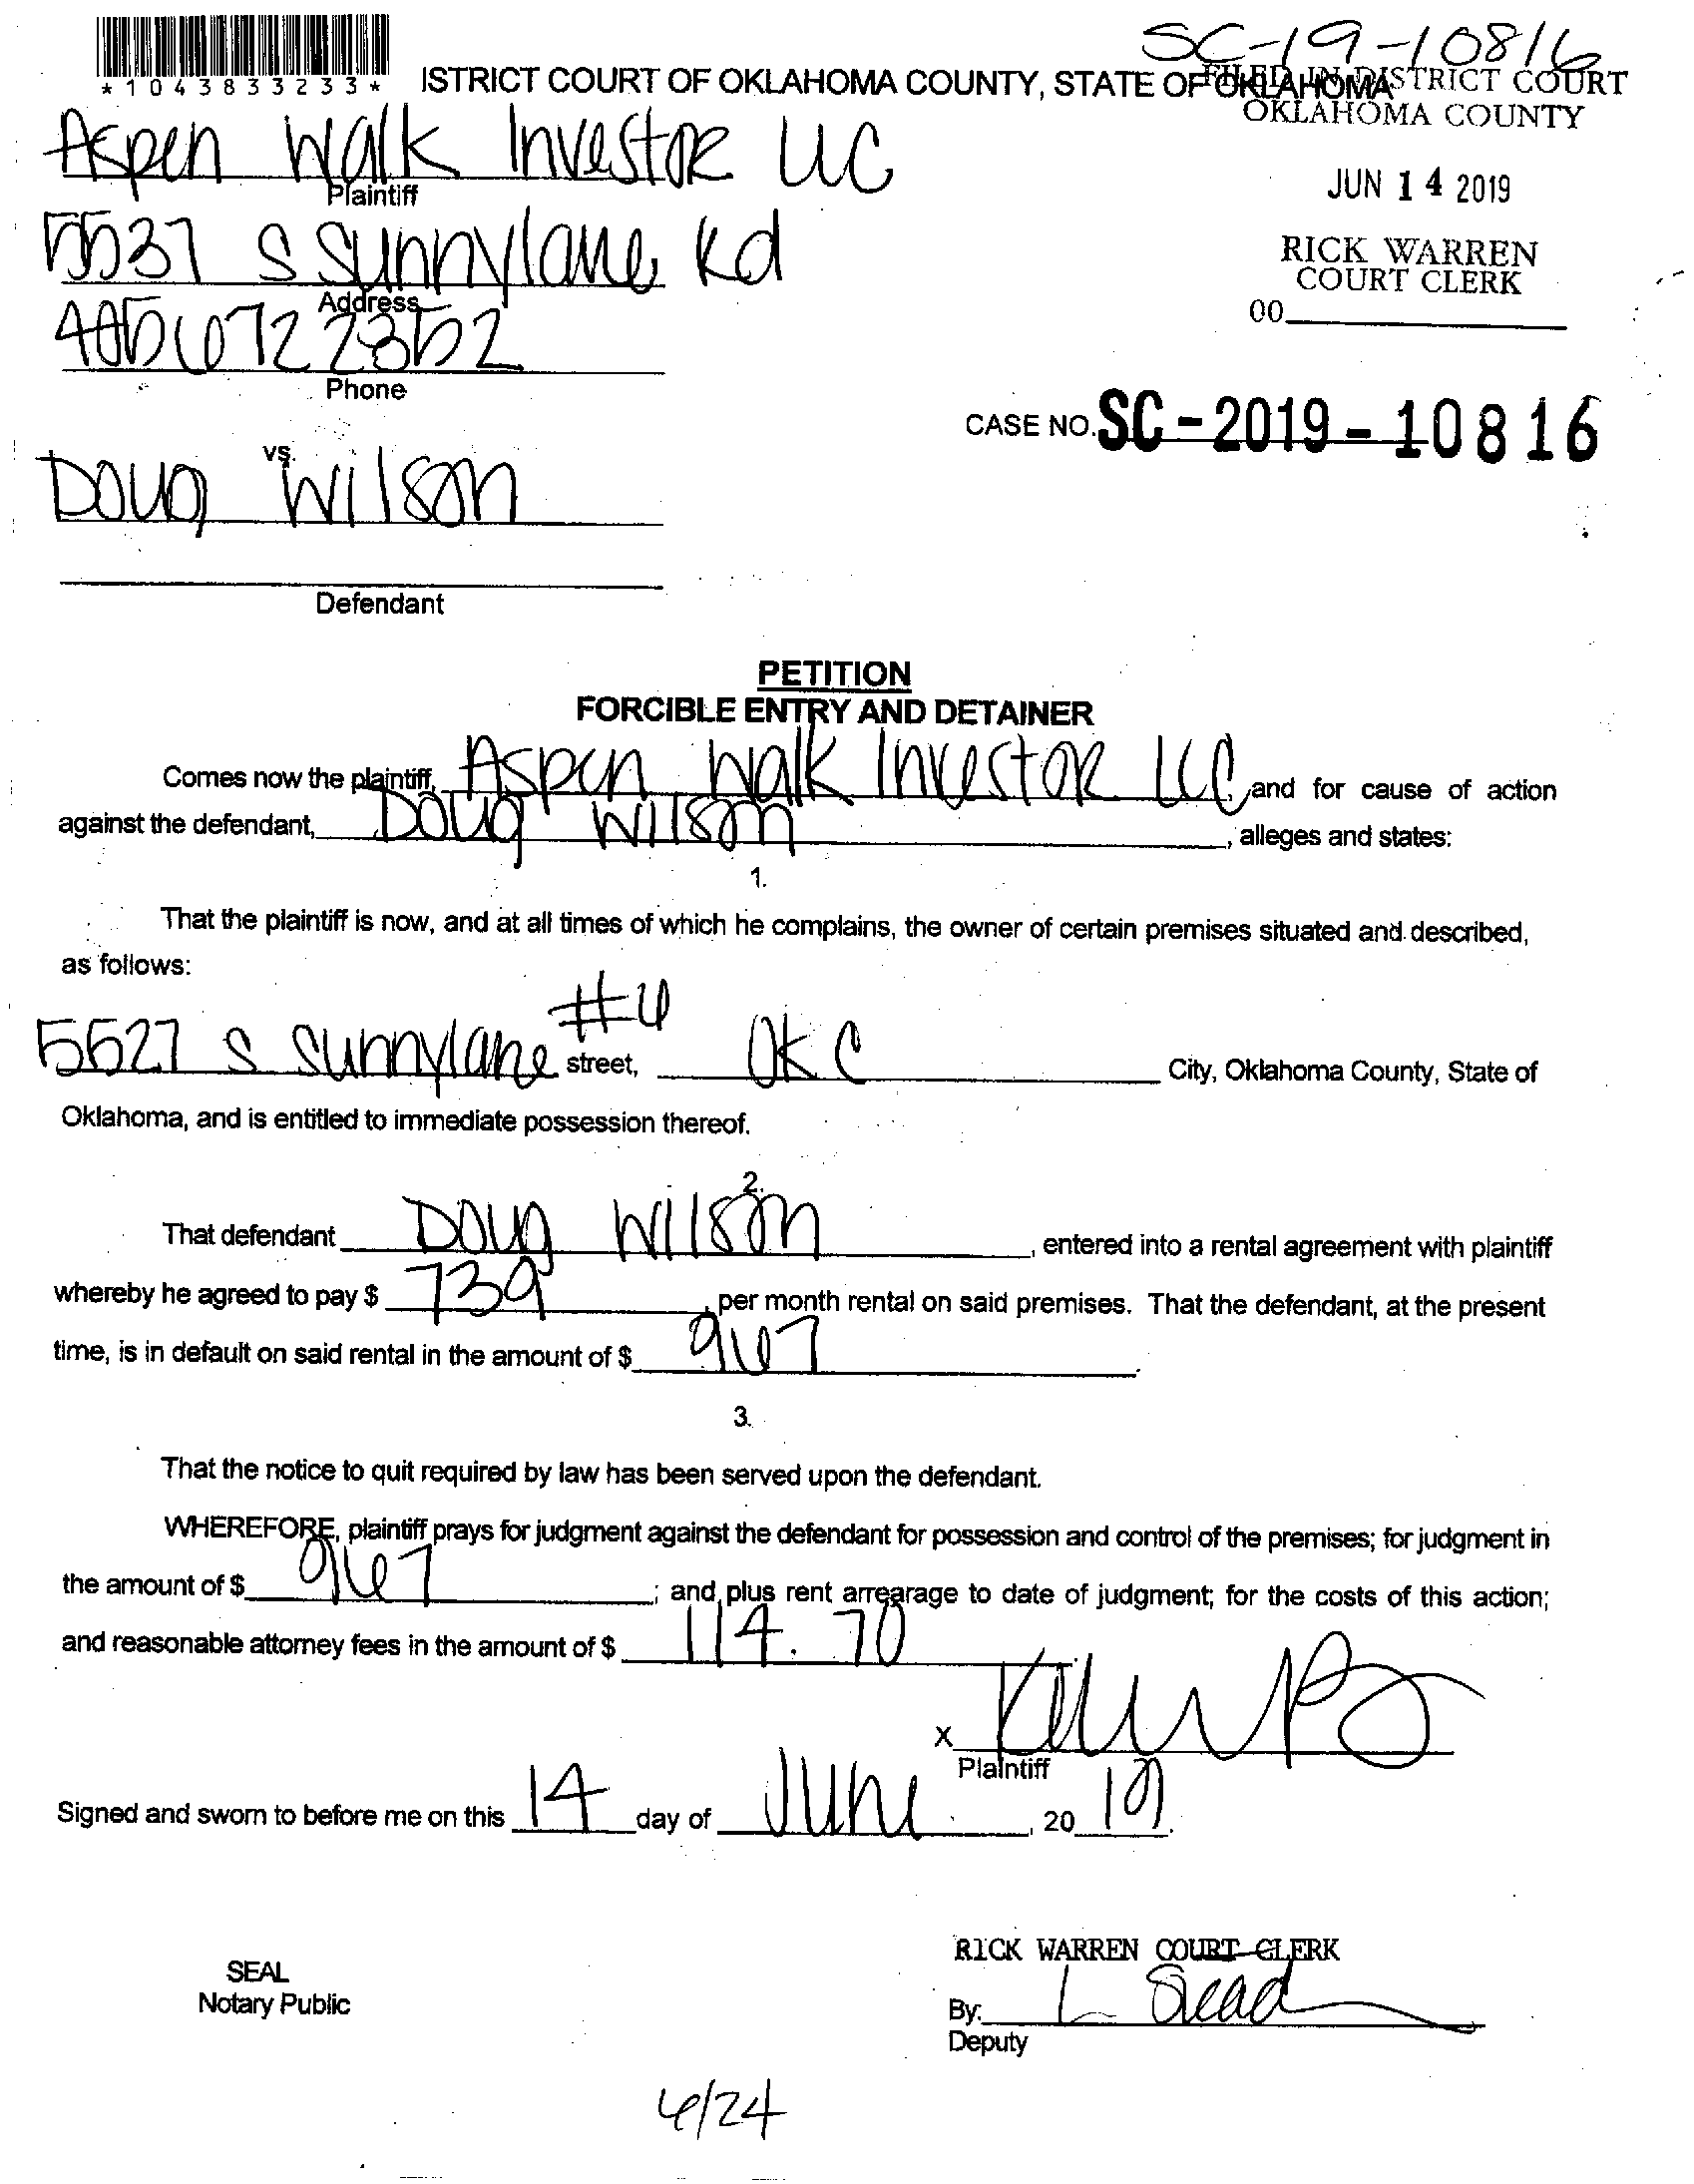 SC-19-10816
*1043833233*
ISTRICT COURT OF OKLAHOMA COUNTY, STATE OF OKLAHOMA
FILED IN DISTRICT COURT
OKLAHOMA COUNTY
Aspen Walk Investor LLC
Plaintiff
JUN 14 2019
5537 S Sunnylane Rd
Address
RICK WARREN
COURT CLERK
00
4056722352
Phone
CASE NO. SC-2019-10816
vs.
Doug Wilson
Defendant
PETITION
FORCIBLE ENTRY AND DETAINER
Comes now the plaintiff, Aspen Walk Investor LLC, and for cause of action
against the defendant, Doug Wilson, alleges and states:
1.
That the plaintiff is now, and at all times of which he complains, the owner of certain premises situated and described,
as follows:
5527 S Sunnylane street, OKC City, Oklahoma County, State of
Oklahoma, and is entitled to immediate possession thereof.
2.
That defendant Doug Wilson, entered into a rental agreement with plaintiff
whereby he agreed to pay $ 739, per month rental on said premises. That the defendant, at the present
time, is in default on said rental in the amount of $ 967.
3.
That the notice to quit required by law has been served upon the defendant.
WHEREFORE, plaintiff prays for judgment against the defendant for possession and control of the premises; for judgment in
the amount of $ 967; and plus rent arrearage to date of judgment; for the costs of this action;
and reasonable attorney fees in the amount of $ 114.70.
X
Plaintiff
Signed and sworn to before me on this 14 day of June, 20 19.
RICK WARREN COURT CLERK
SEAL
Notary Public
By: L
Deputy
6/24